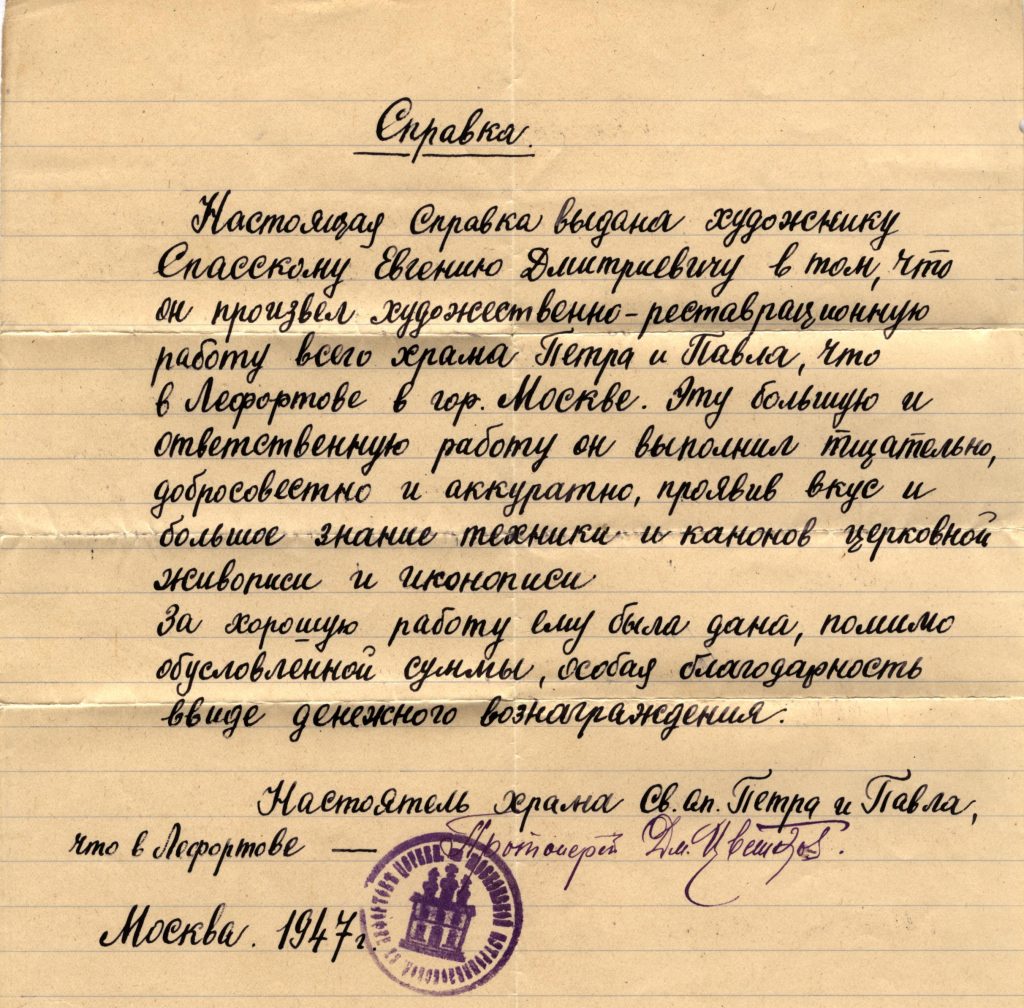 Справка.
Настоящая Справка выдана художнику
Спасскому Евгению Дмитриевичу в том, что
он произвел художественно-реставрационную
работу всего храма Петра и Павла, что
в Лефортове в гор. Москве. Эту большую и
ответственную работу он выполнил тщательно,
добросовестно и аккуратно, проявив вкус и
большое знание техники и канонов церковной
живописи и иконописи
За хорошую работу ему была дана, помимо
обусловленной суммы, особая благодарность
ввиде денежного вознаграждения.
Настоятель храма Св. ап. Петра и Павла,
что в Лефортове — Протоиерей Дм. Цветков.
Москва. 1947 г.